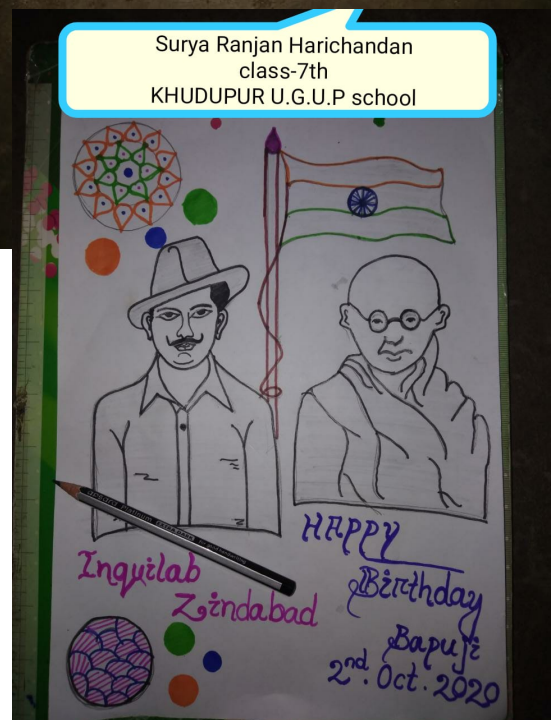 Surya Ranjan Harichandan
class-7th
KHUDUPUR U.G.U.P school
Inquilab
Zindabad
HAPPY
Birthday
Bapuji
2nd. Oct. 2020